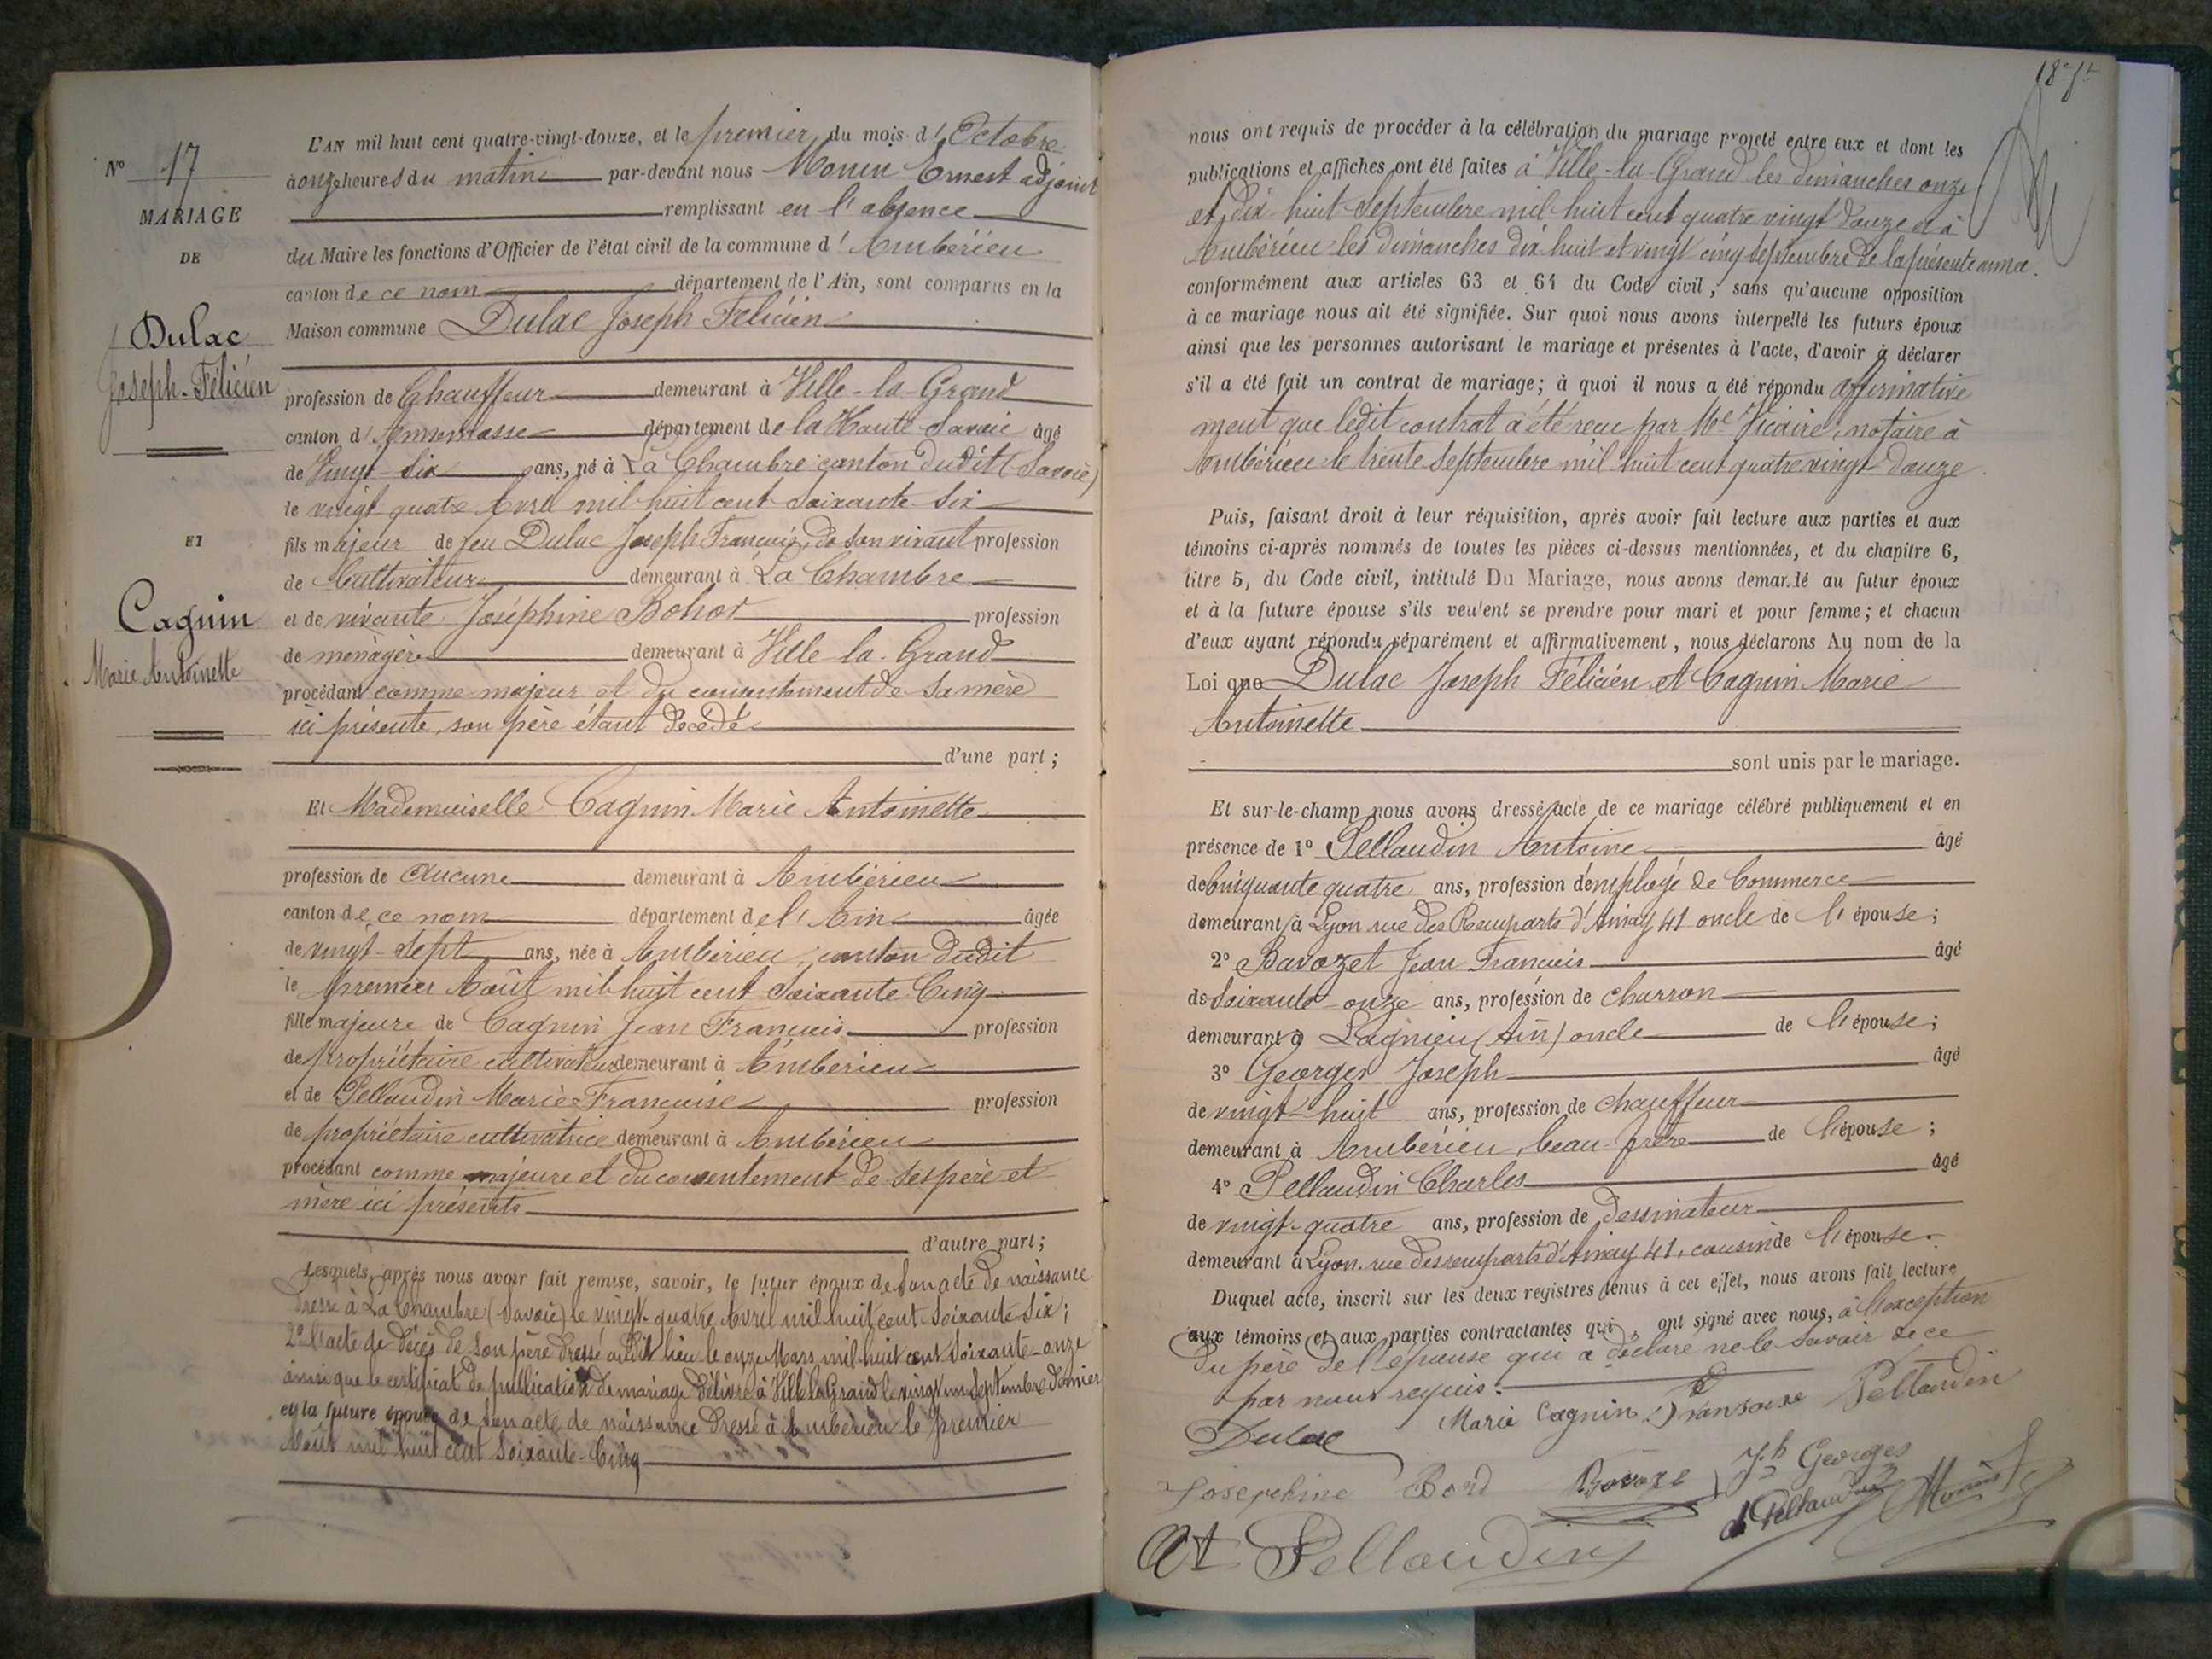 N° 17
MARIAGE
DE
Dulac
Joseph-Félicien
ET
Cagnin
Marie Antoinette
L'AN mil huit cent quatre-vingt-douze, et le premier du mois d'Octobre
à onze heures du matin par-devant nous Monin Ernest adjoint
remplissant en l'absence
du Maire les fonctions d'Officier de l'état civil de la commune d'Ambérieu
canton de ce nom département de l'Ain, sont comparus en la
Maison commune Dulac Joseph Félicien
profession de Chauffeur demeurant à Ville-la-Grand
canton d'Annemasse département de la Haute-Savoie âgé
de Vingt-six ans, né à La Chambre canton dudit (Savoie)
le vingt quatre Avril mil huit cent soixante-six
fils majeur de feu Dulac Joseph François, de son vivant profession
de Cultivateur demeurant à La Chambre
et de vivante Joséphine profession
de ménagère demeurant à Ville la-Grand
procédant comme majeur et du consentement de sa mère
ici présente, son père étant décédé
d'une part ;
Et Mademoiselle Cagnin Marie Antoinette
profession de aucune demeurant à Ambérieu
canton de ce nom département de l'Ain âgée
de vingt-sept ans, née à Ambérieu, canton dudit
le premier Août mil huit cent soixante Cinq
fille majeure de Cagnin Jean François profession
de propriétaire cultivateur demeurant à Ambérieu
et de Pellaudin Marie-Françoise profession
de propriétaire cultivatrice demeurant à Ambérieu
procédant comme majeure et du consentement de ses père et
mère ici présents
d'autre part ;
Lesquels, après nous avoir fait remise, savoir, le futur époux de son acte de naissance
dressé à La Chambre (Savoie) le vingt-quatre Avril mil huit cent soixante-six ;
2° l'acte de décès de son père dressé audit lieu le onze Mars mil huit cent soixante-onze
ainsi que le certificat de publication de mariage délivré à Ville la Grand le vingt un Septembre dernier
et la future épouse de son acte de naissance dressé à Ambérieu le premier
Août mil huit cent soixante-Cinq
nous ont requis de procéder à la célébration du mariage projeté entre eux et dont les
publications et affiches ont été faites à Ville-la-Grand les dimanches onze
et dix-huit Septembre mil huit cent quatre vingt douze et à
Ambérieu les dimanches dix huit et vingt cinq septembre de la présente année.
conformément aux articles 63 et 64 du Code civil, sans qu'aucune opposition
à ce mariage nous ait été signifiée. Sur quoi nous avons interpellé les futurs époux
ainsi que les personnes autorisant le mariage et présentes à l'acte, d'avoir à déclarer
s'il a été fait un contrat de mariage ; à quoi il nous a été répondu affirmative
ment que ledit contrat a été reçu par Me Vicaire, notaire à
Ambérieu le trente Septembre mil huit cent quatre vingt-douze.
Puis, faisant droit à leur réquisition, après avoir fait lecture aux parties et aux
témoins ci-après nommés de toutes les pièces ci-dessus mentionnées, et du chapitre 6,
titre 5, du Code civil, intitulé Du Mariage, nous avons demandé au futur époux
et à la future épouse s'ils veulent se prendre pour mari et pour femme ; et chacun
d'eux ayant répondu séparément et affirmativement, nous déclarons Au nom de la
Loi que Dulac Joseph Félicien et Cagnin Marie
Antoinette
sont unis par le mariage.
Et sur-le-champ nous avons dressé acte de ce mariage célébré publiquement et en
présence de 1° Pellaudin Antoine âgé
de Cinquante quatre ans, profession d'employé de Commerce
demeurant à Lyon rue des Remparts d'Ainay 41 oncle de l'épouse ;
2° Bavozet Jean François âgé
de Soixante-onze ans, profession de charron
demeurant à Lagnieu (Ain) oncle de l'épouse ;
3° Georges Joseph âgé
de vingt-huit ans, profession de chauffeur
demeurant à Ambérieu, beau-frère de l'épouse ;
4° Pellaudin Charles âgé
de vingt-quatre ans, profession de dessinateur
demeurant à Lyon rue des remparts d'Ainay 41, cousin de l'épouse.
Duquel acte, inscrit sur les deux registres tenus à cet effet, nous avons fait lecture
aux témoins et aux parties contractantes qui ont signé avec nous, à l'exception
du père de l'épouse qui a déclaré ne le savoir de ce
par nous requis.
Dulac Marie Cagnin Fransoise Pellaudin
Josephine Bord Bavoze Jh Georges
At Pellaudin Pellaudin Monin